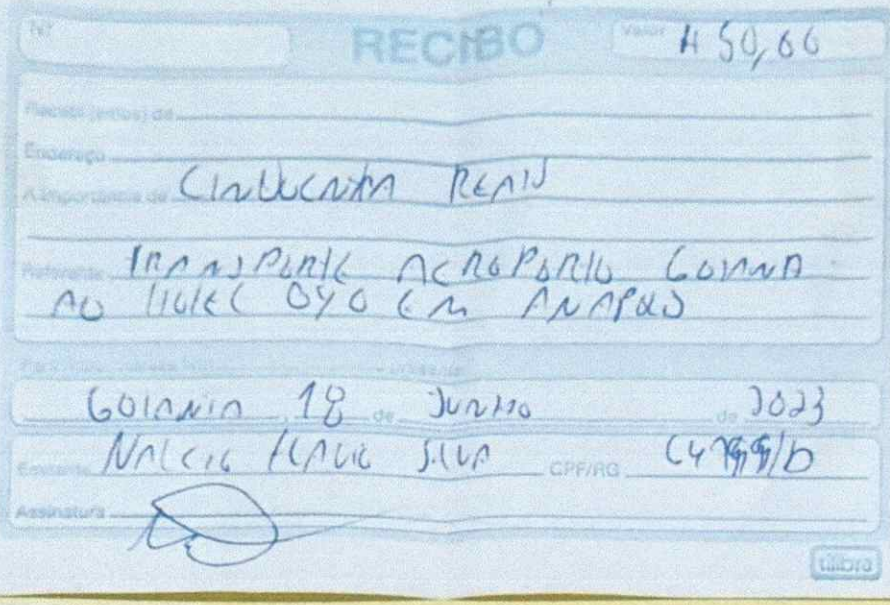 Nº RECIBO Valor # 50,00
Recebi(emos) de
Endereço
A importância de CINQUENTA REAIS
Referente TRANSPORTE AEROPORTO GOIANIA
AO HOTEL OYO EM ANAPOLIS
GOIANIA 18 de JUNHO de 2023
Emitente FLAVIO SILVA CPF/RG
Assinatura
tilibra